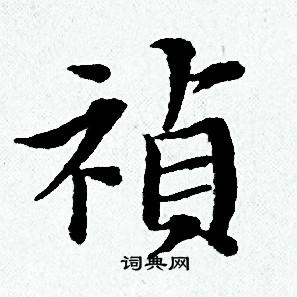 禎
词典网